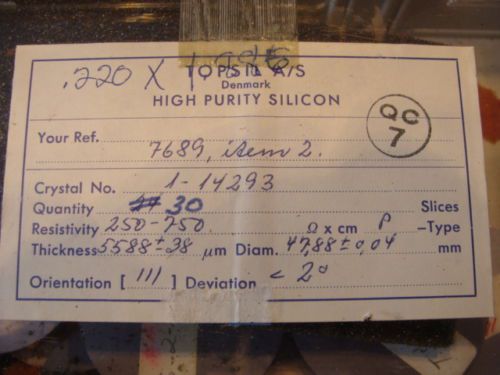 .220 X 1.886
TOPSIL A/S
Denmark
HIGH PURITY SILICON
QC
7
Your Ref. 7689, item 2.
Crystal No. 1-14293
Quantity 30 Slices
Resistivity 250-750 Ω x cm P -Type
Thickness 5588 ± 38 µm Diam. 47,88 ± 0,04 mm
Orientation [ 111 ] Deviation < 2°